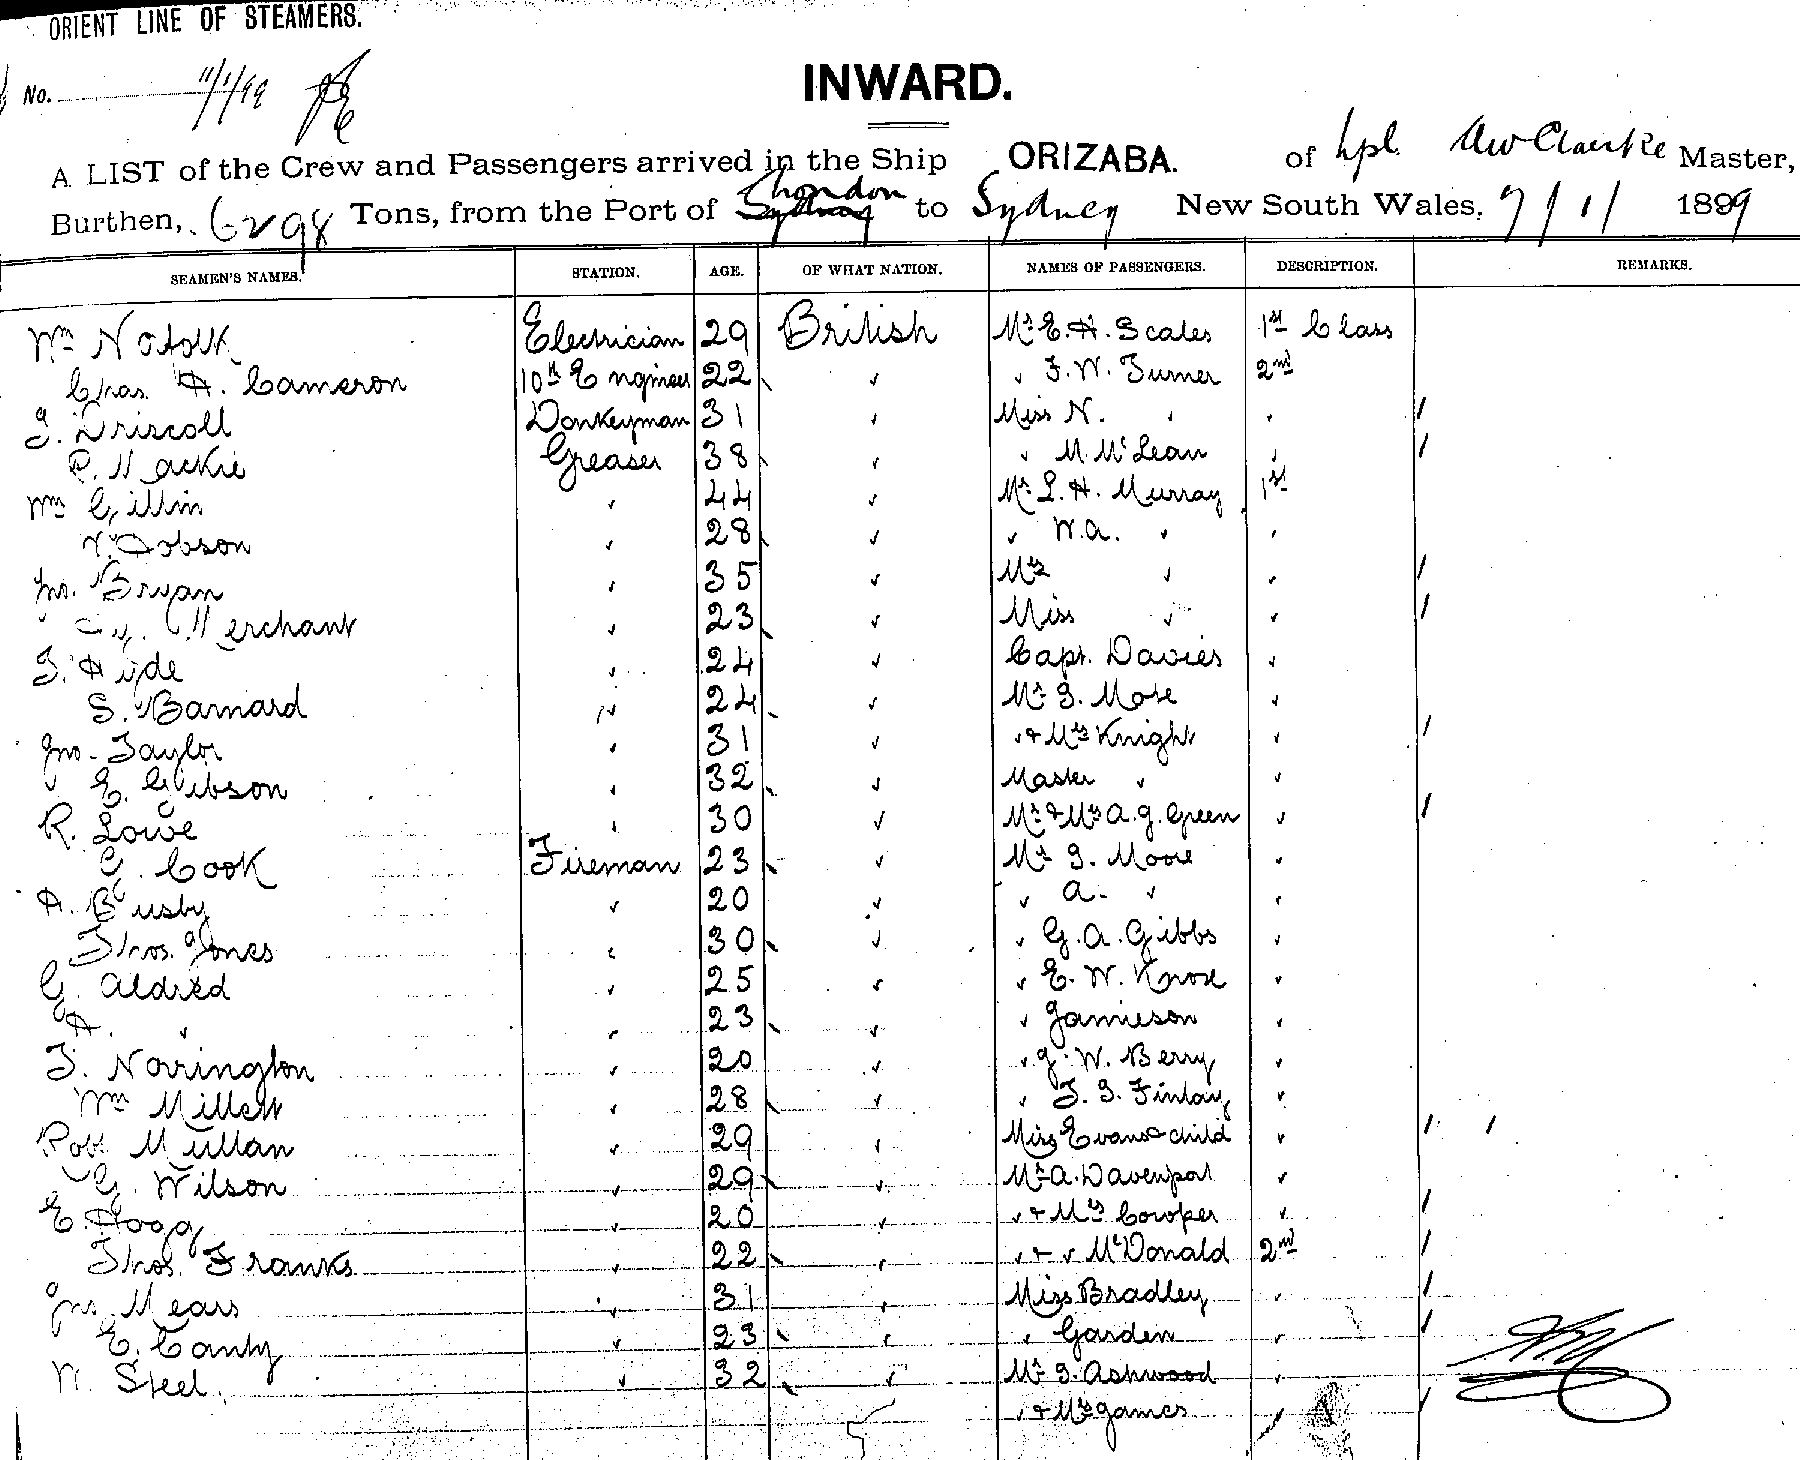 ORIENT LINE OF STEAMERS.
No. 11/1/99
INWARD.
A LIST of the Crew and Passengers arrived in the Ship ORIZABA. of A W Clarke Master,
Burthen, 6298 Tons, from the Port of London to Sydney New South Wales, 7/1/ 1899
SEAMEN'S NAMES. STATION. AGE. OF WHAT NATION. NAMES OF PASSENGERS. DESCRIPTION. REMARKS.
Wm Norfolk Electrician 29 British Mr E. H. Scales 1st Class
Chas. H. Cameron 10th Engineer 22 " " F. W. Turner 2nd
J. Driscoll Donkeyman 31 " Miss N. " "
P. Mackie Greaser 38 " " M. McLean "
Wm Gillin " 44 " Mr L. H. Murray 1st
Dobson " 28 " " W. A. " "
Jno. Bryan " 35 " Mrs " "
Merchant " 23 " Miss " "
J. Hyde " 24 " Capt. Davies "
S. Barnard " 24 " Mr S. More "
Jno. Taylor " 31 " " & Mrs Knight "
" E. Gibson " 32 " Master " "
R. Lowe " 30 " Mr & Mrs A. J. Green "
G. Cook Fireman 23 " Mr S. Moore "
H. Busby " 20 " " A. " "
Thos. Jones " 30 " " G. A. Gibbs "
G. Aldred " 25 " " E. W. Knox "
H. " " 23 " " Jamieson "
J. Norrington " 20 " " J. W. Berry "
Wm Millett " 28 " " T. S. Finlay "
Robt Mullan " 29 " Miss Evans & child "
G. Wilson " 29 " Mr A. Davenport "
E. Hogg " 20 " " & Mrs Cowper "
Thos. Franks " 22 " " & " McDonald 2nd
Jno. Mears " 31 " Miss Bradley "
E. Canty " 23 " " Garden "
W. Steel " 32 " Mr S. Ashwood "
" & Mrs James "